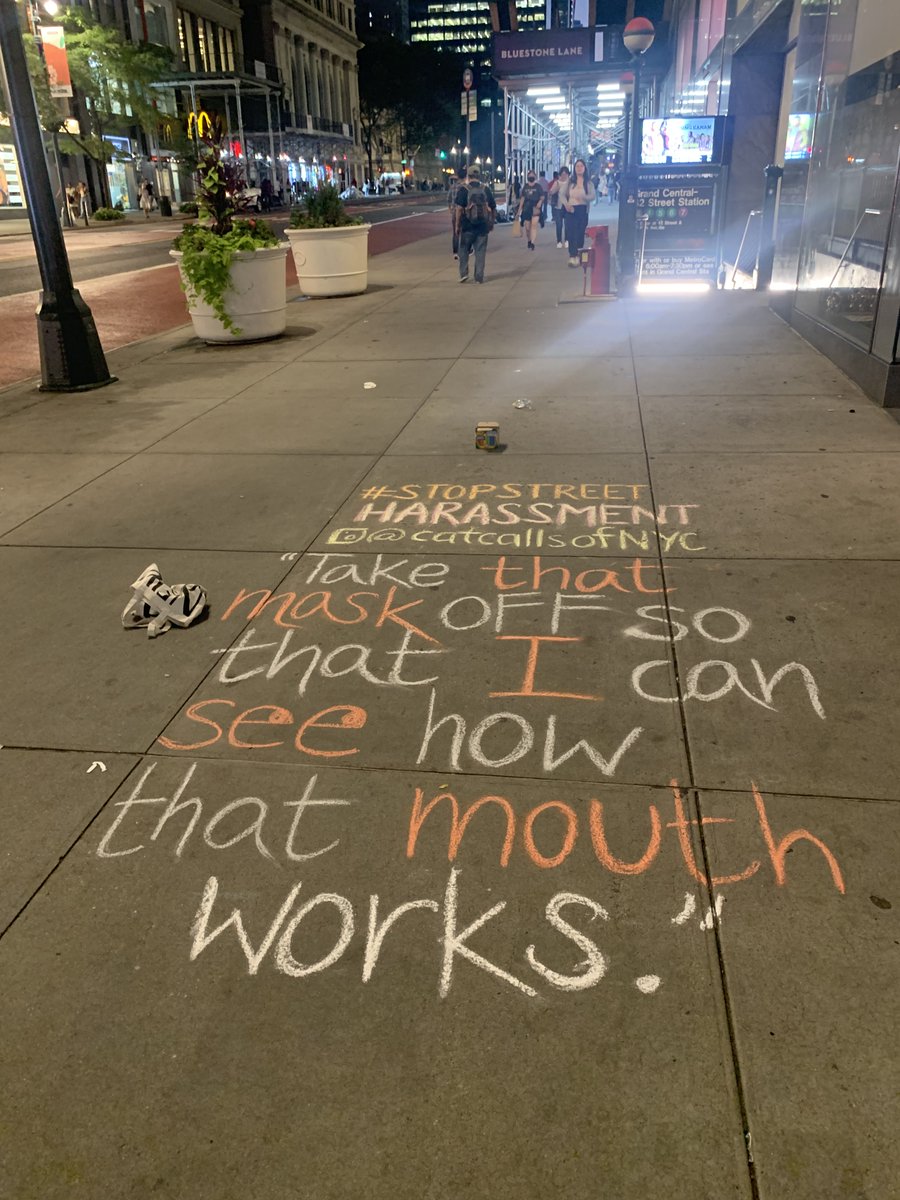 BLUESTONE LANE
Grand Central-
2 Street Station
#STOPSTREET
HARASSMENT
@catcallsofNYC
"Take that
mask OFF so
that I can
see how
that mouth
works."